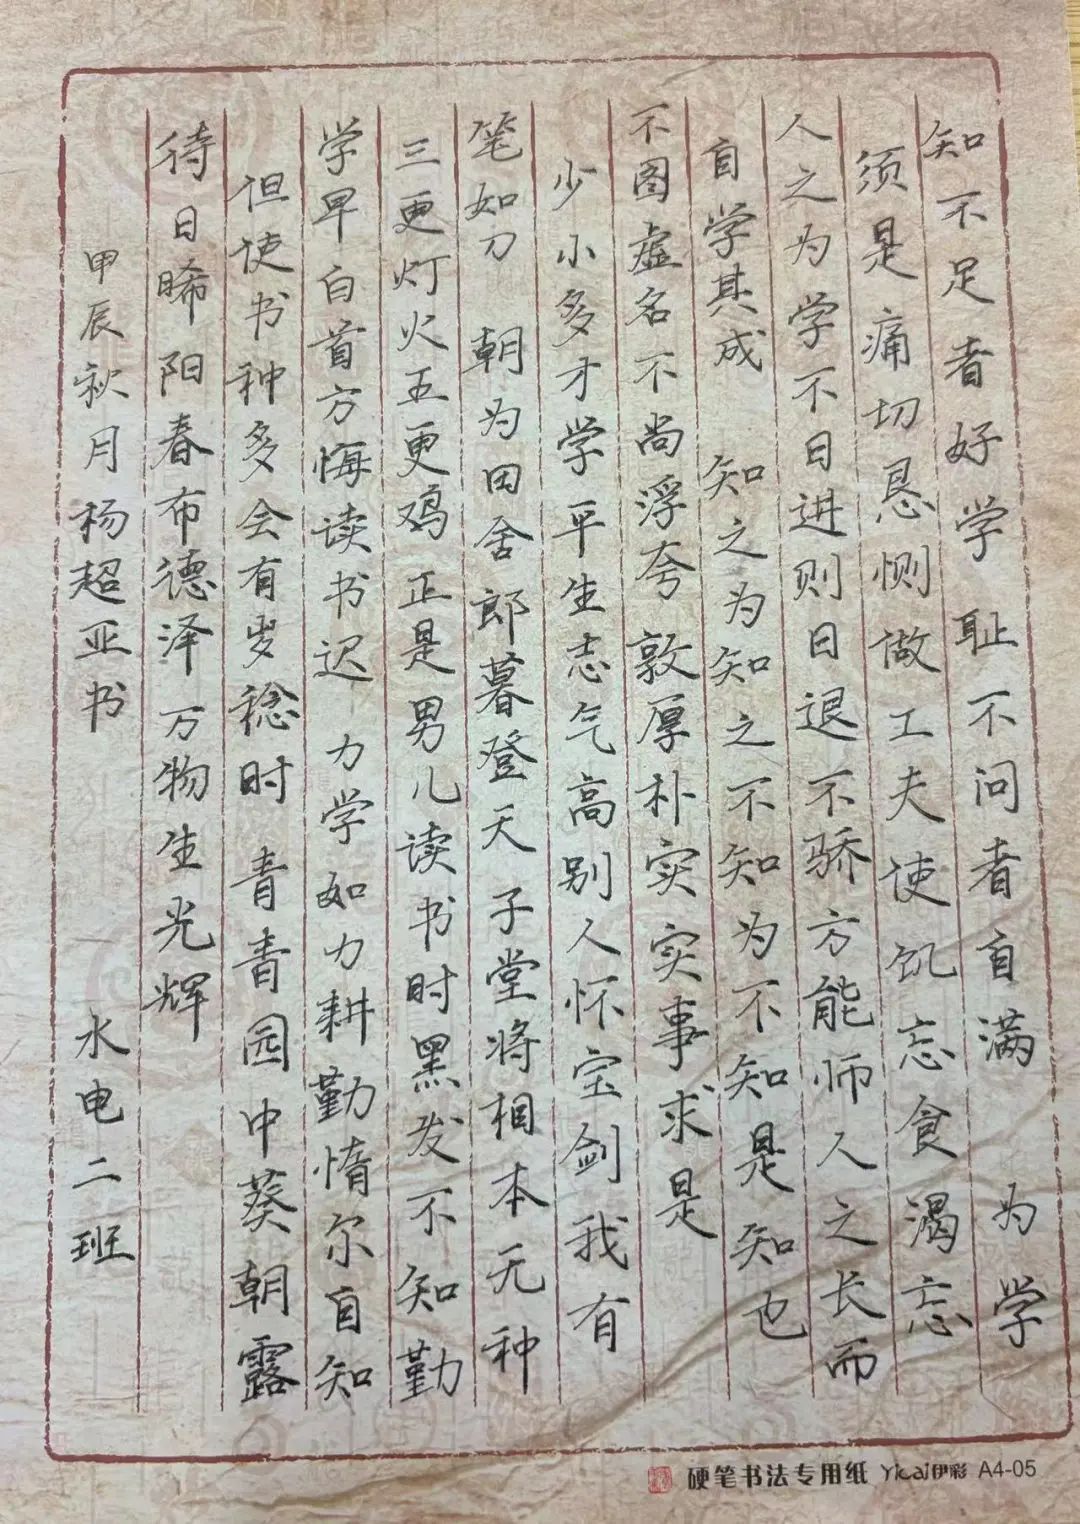 知不足者好学 耻不问者自满 为学
须是痛切恳恻做工夫使饥忘食渴忘
人之为学不日进则日退 不骄方能师人之长而
自学其成 知之为知之不知为不知是知也
不图虚名不尚浮夸 敦厚朴实实事求是
少小多才学平生志气高别人怀宝剑我有
笔如刀 朝为田舍郎暮登天子堂将相本无种
三更灯火五更鸡正是男儿读书时黑发不知勤
学早白首方悔读书迟 力学如力耕勤惰尔自知
但使书种多会有岁稔时 青青园中葵朝露
待日晞阳春布德泽万物生光辉
甲辰秋月杨超亚书 水电二班
硬笔书法专用纸 Yicai伊彩 A4-05